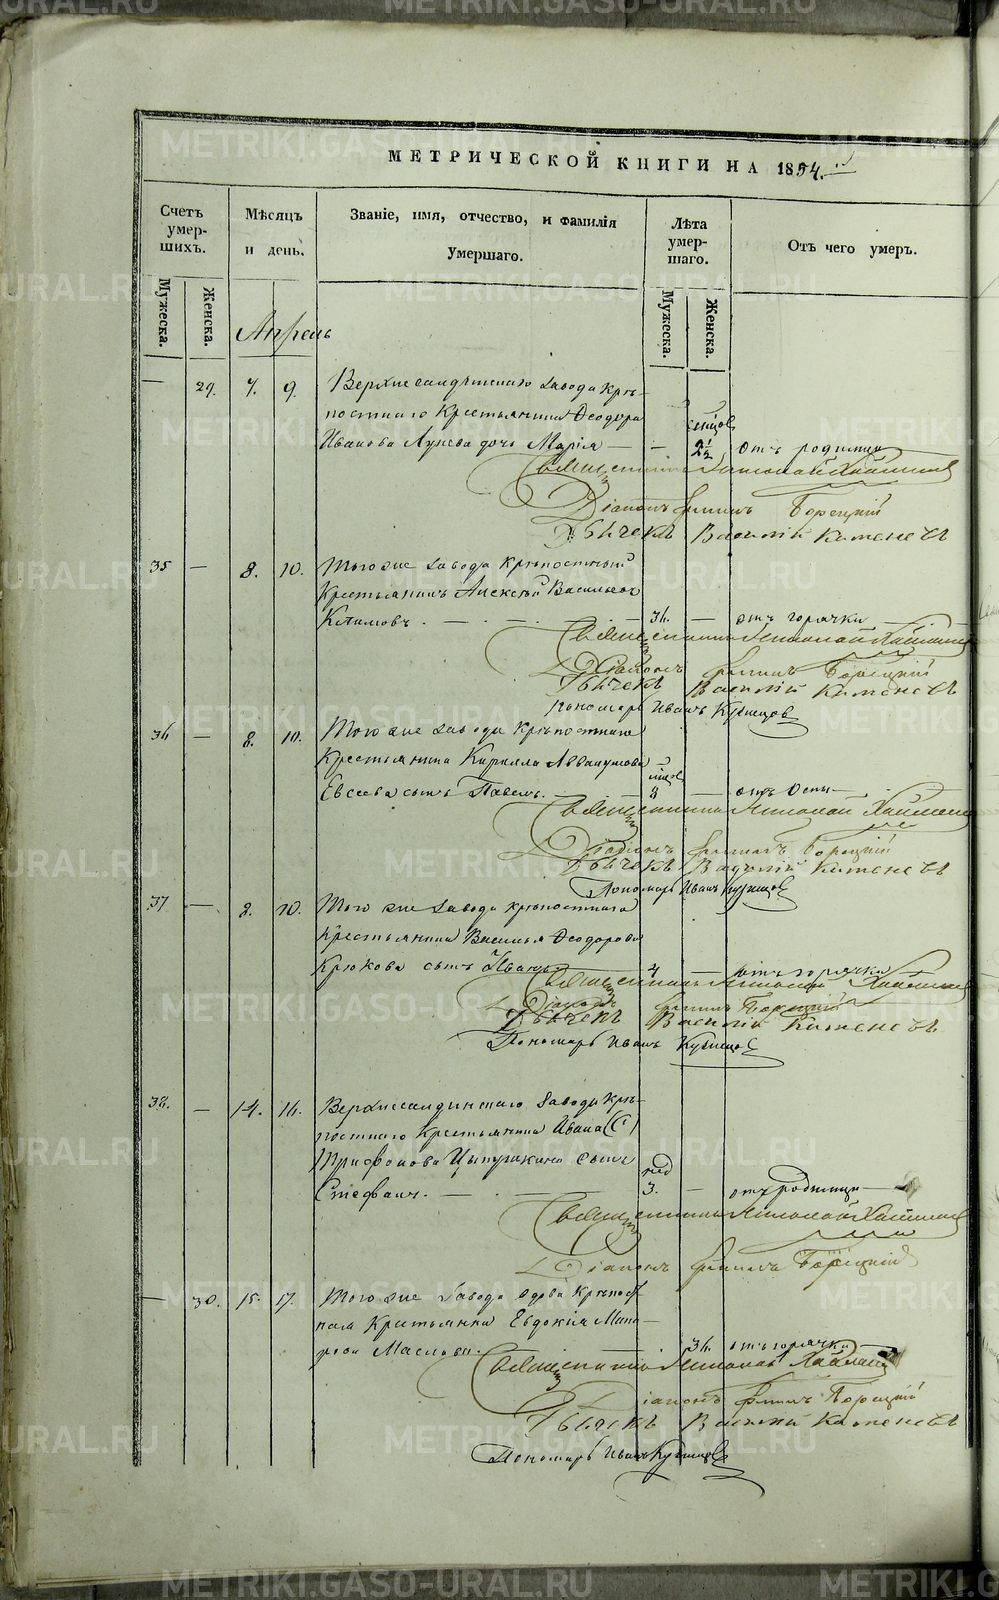 МЕТРИЧЕСКОЙ КНИГИ НА 1854.
Счетъ умер-шихъ.
Мѣсяцъ и день.
Званіе, имя, отчество, и фамилія Умершаго.
Лѣта умер-шаго.
Отъ чего умеръ.
Мужеска.
Женска.
Мужеска.
Женска.
Апрель
— 29. 7. 9. Верхнесалдинскаго завода Крѣ-
постнаго Крестьянина Ѳеодора
Иванова Лунева дочь Марія — — 2½ отъ родимца
Священникъ Николай
Діаконъ Филипъ Борецкій
Дьячекъ Василій Каменевъ
35 — 8. 10. Того же завода Крѣпостный
Крестьянинъ Алексѣй Васильевъ
Климовъ. — 36. — отъ горячки
Священникъ Николай
Діаконъ Филипъ Борецкій
Дьячекъ Василій Каменевъ
Пономарь Иванъ Кузнецов
36 — 8. 10. Того же завода Крѣпостнаго
Крестьянина Кирилла Аввакумова
Евсеева сынъ Павелъ. — 3 — отъ Оспы
Священникъ Николай
Діаконъ Филипъ Борецкій
Дьячекъ Василій Каменевъ
Пономарь Иванъ Кузнецов
37 — 8. 10. Того же завода крѣпостнаго
Крестьянина Василья Ѳеодорова
Крюкова сынъ Иванъ 4 — отъ горячки
Священникъ Николай
Діаконъ Филипъ Борецкій
Дьячекъ Василій Каменевъ
Пономарь Иванъ Кузнецов
38. — 14. 16. Верхнесалдинскаго завода Крѣ-
постнаго Крестьянина Ивана (С)
Трифонова Цыпушкина сынъ
Стефанъ. — нед 3. — отъ родимца —
Священникъ Николай
Діаконъ Филипъ Борецкій
— 30. 15. 17. Того же завода вдова Крѣпост-
ная Крестьянка Евдокія Мака-
рова Маслова. 36. отъ горячки
Священникъ Николай
Діаконъ Филипъ Борецкій
Дьячекъ Василій Каменевъ
Пономарь Иванъ Кузнецов
METRIKI.GASO-URAL.RU